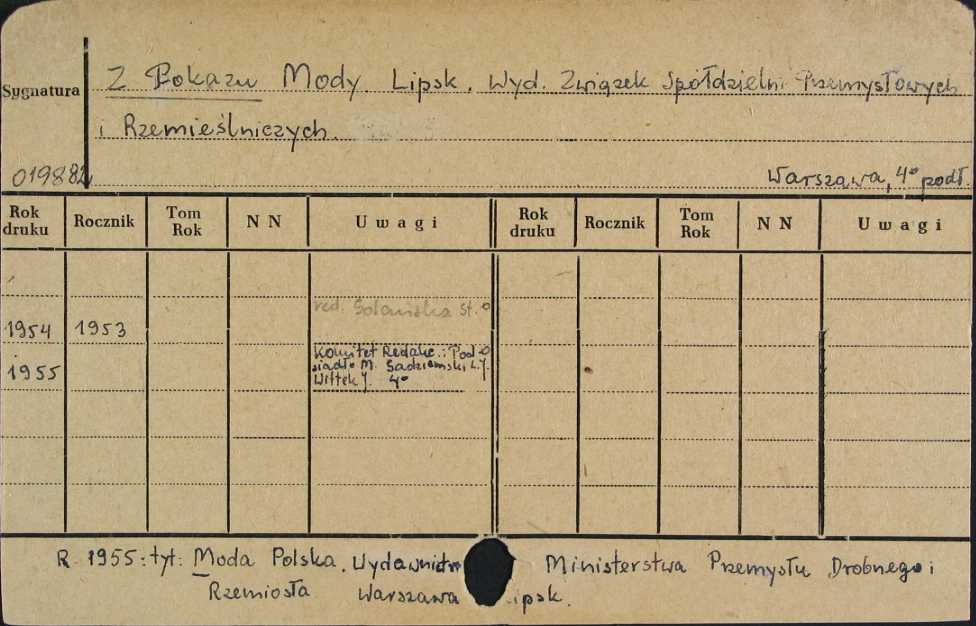 Sygnatura
Z Pokazu Mody. Lipsk. Wyd. Związek Spółdzielni Przemysłowych
i Rzemieślniczych.
019882
Warszawa, 4° podł.
Rok druku Rocznik Tom Rok N N Uwagi Rok druku Rocznik Tom Rok N N Uwagi
red. St.
1954 1953
Komitet Redakc.: Pod-
1955 siadło M. Sadziemski L. J.
Wittek J. 4°
R 1955: tyt: Moda Polska. Wydawnictw Ministerstwa Przemysłu Drobnego i
Rzemiosła Warszawa ipsk.